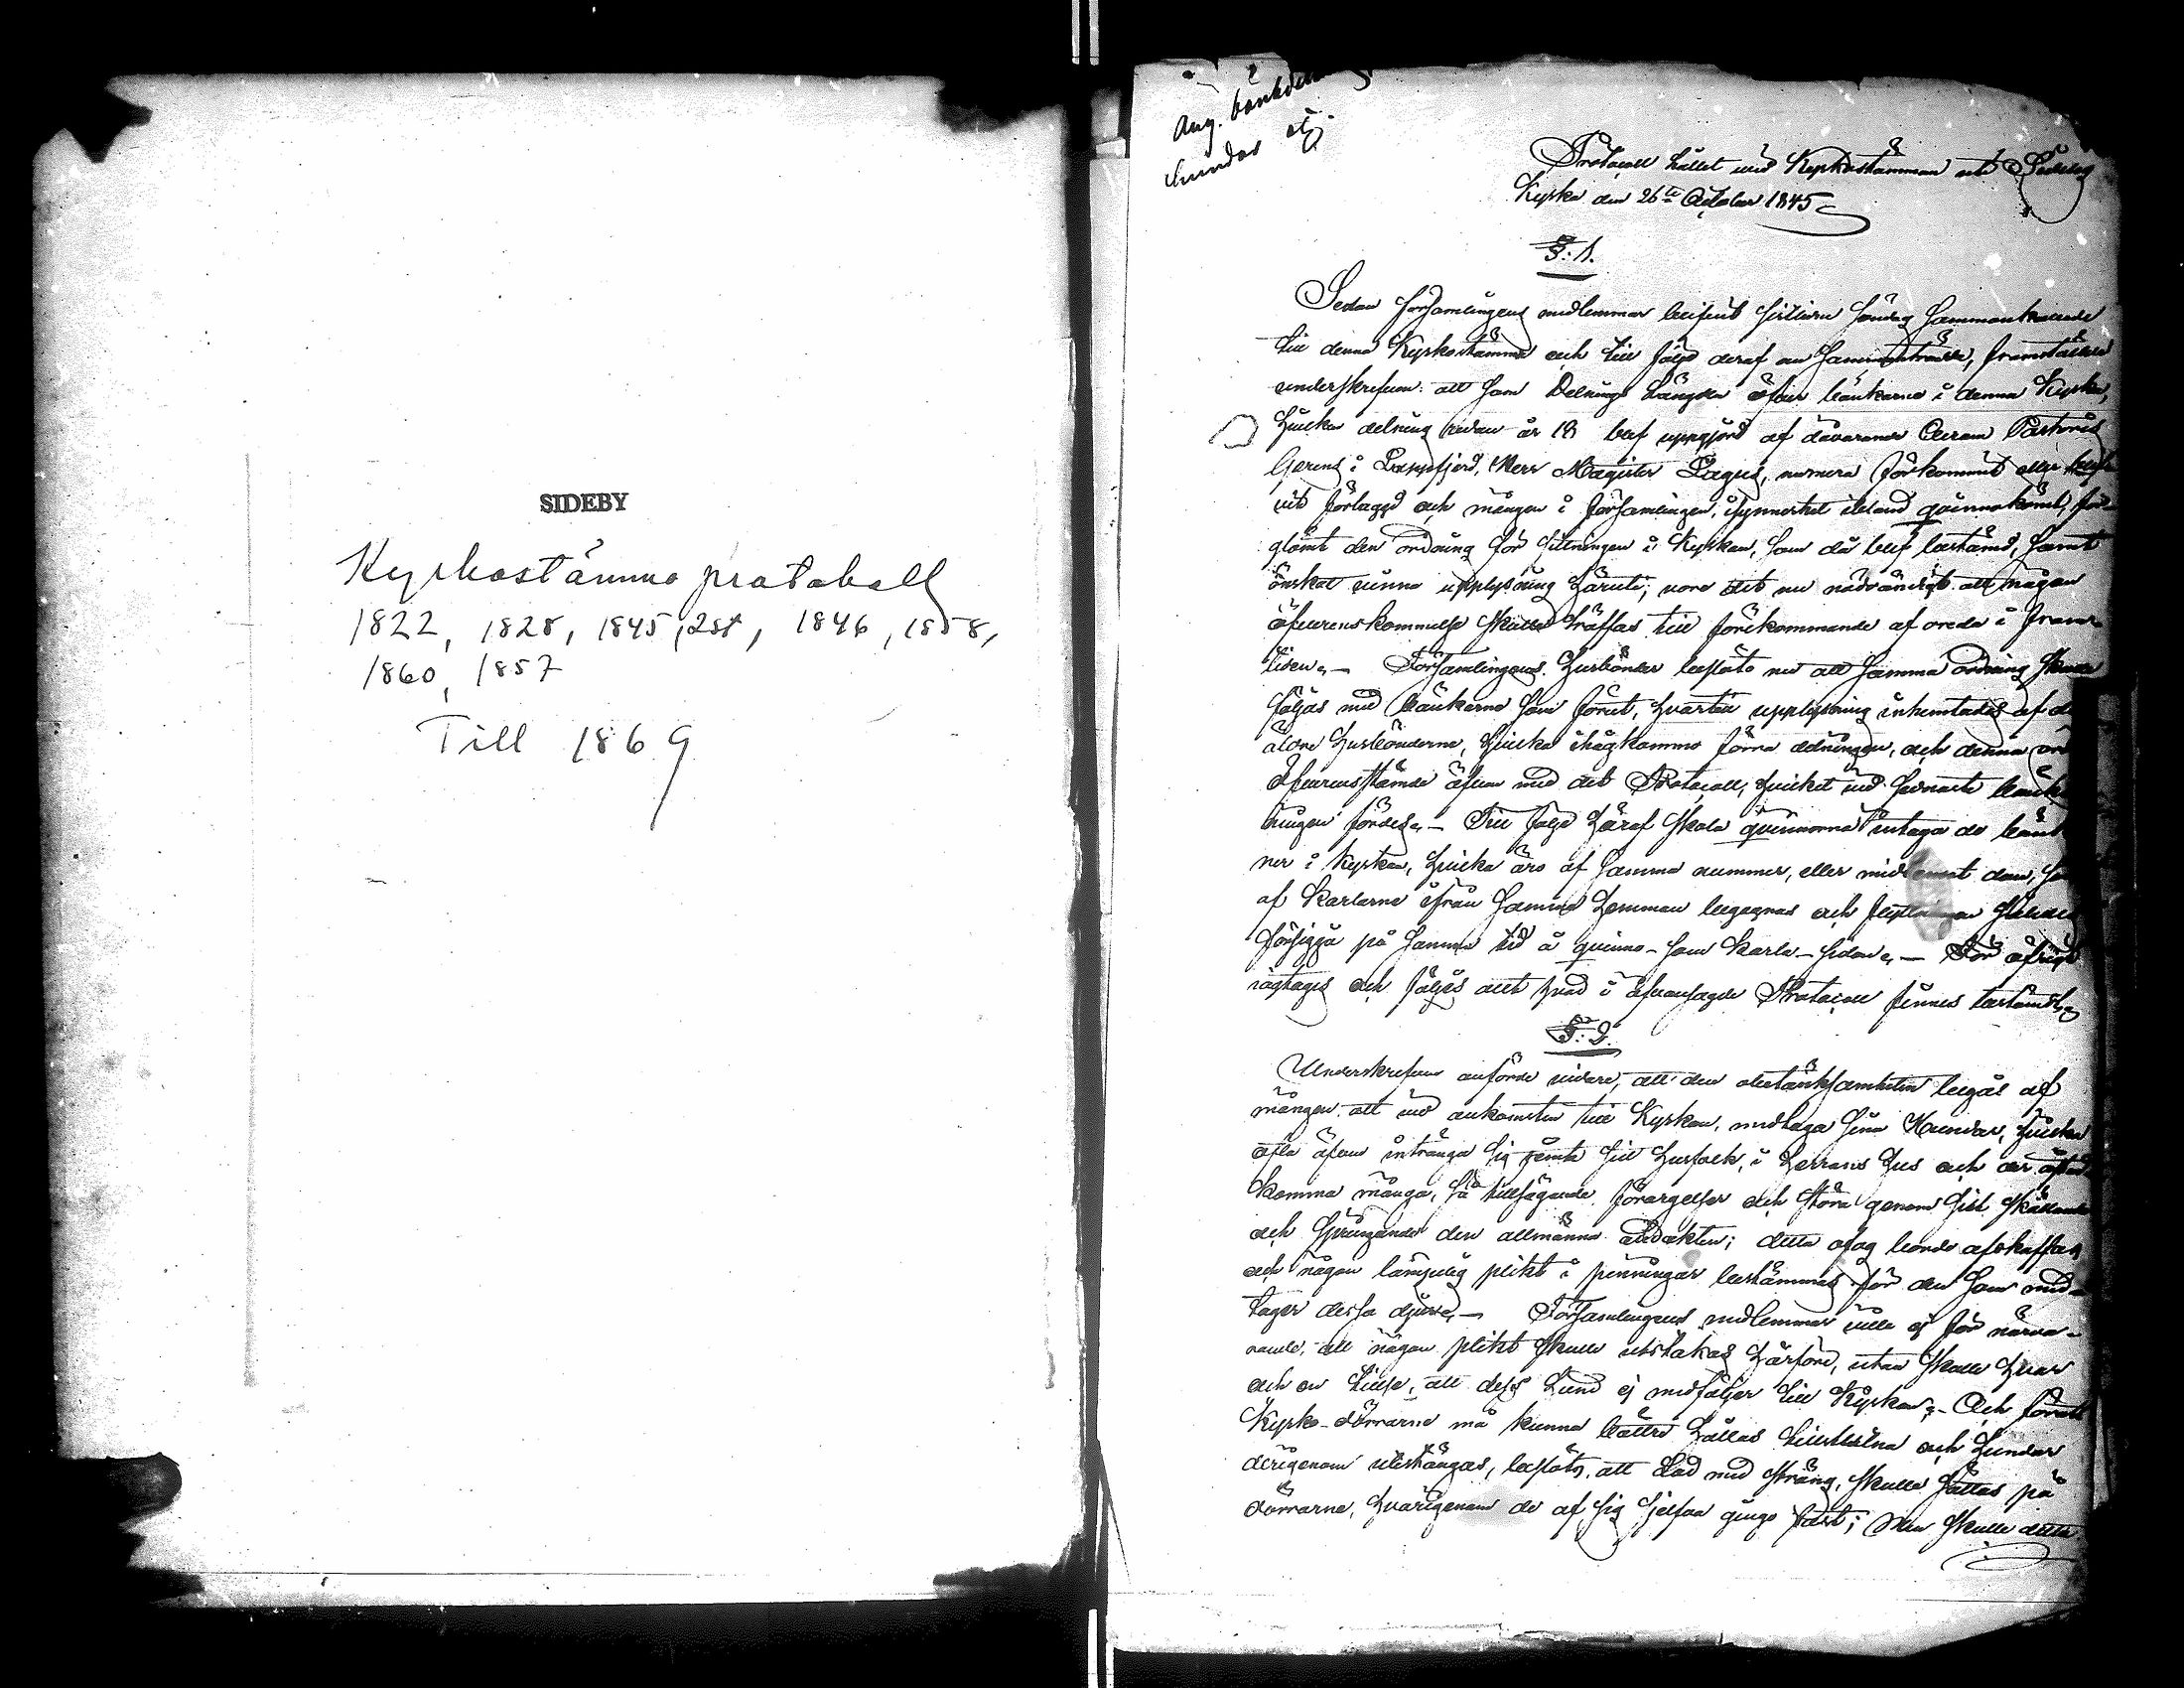 SIDEBY
Kyrkostämmo protokoll
1822, 1828, 1845, 2st, 1846, 1858,
1860, 1857
Till 1869
Ang. bänkdel
hundar etc.
Protocoll hållet vid Kyrkostämman uti Sideby
Kyrka den 26te October 1845
§. 1.
Sedan Församlingens medlemmar blifvit sistleden Söndag sammankallade
till denna Kyrkostämma och till följd deraf nu sammanträdt, framställde
underskrefven: att som Delnings Längden öfver bänkarne i denna Kyrka,
hvilken delning redan år 18 blef uppgjord af dåvarande Vicem Pastoris
Gerens i Lappfjerd, Herr Magister Pagus, numera förkommit eller
vit förlaggd och mången i församlingen, isynnerhet ibland qvinnokönet, för-
glömt den ordning för sittningen i Kyrkan, som då blef bestämd, samt
önskat vinna upplysning häruti; vore det nu nödvändigt att någon
öfverenskommelse skulle träffas till förekommande af oreda i fram-
tiden. – Församlingens Husbönder beslöto nu att samma ordning skulle
följas med bänkarne som förut, hvartill upplysning inhemtades af de
äldre Husbönderne, hvilka ihågkommo förra delningen, och denna
öfverensstämde äfven med det Protocoll, hvilket vid
ningen fördes. – Till följd häraf skola qvinnorna intaga de bänk
ner i Kyrkan, hvilka äro af samma nummer, eller midtemot dem, som
af Karlarne ifrån samma Hemman begagnas och flyttningen
försiggå på samma tid å qvinno- som Karls-sidan. – För öfrigt
iagtages och följes allt hvad i ofvansagde Protocoll finnes bestämdt.
§. 2.
Underskrefven anförde vidare, att den obetänksamheten begås af
mången att vid ankomsten till Kyrkan, medtaga sina Hundar, hvilka
ofta äfven intränga sig jemte sitt husfolk, i Herrans Hus och der
komma många, så tillsägande förargelser och störa genom sitt skällande
och springande den allmänna andakten; detta ofog borde afskaffas,
och någon lämpelig plikt i penningar bestämmas för den som med-
tager dessa djur. – Församlingens medlemmar ville ej för närva-
rande, att någon plikt skulle utstakas härföre, utan skulle hvar
och en tillse, att dess hund ej medföljer till Kyrkan. – Och förutt
Kyrko-dörrarne må kunna bättre hållas tillslutna och hundar
derigenom utestängas, beslöts, att Lod med sträng, skulle sättas på
dörrarne, hvarigenom de af sig sjelfva gingo fast; Men skulle detta